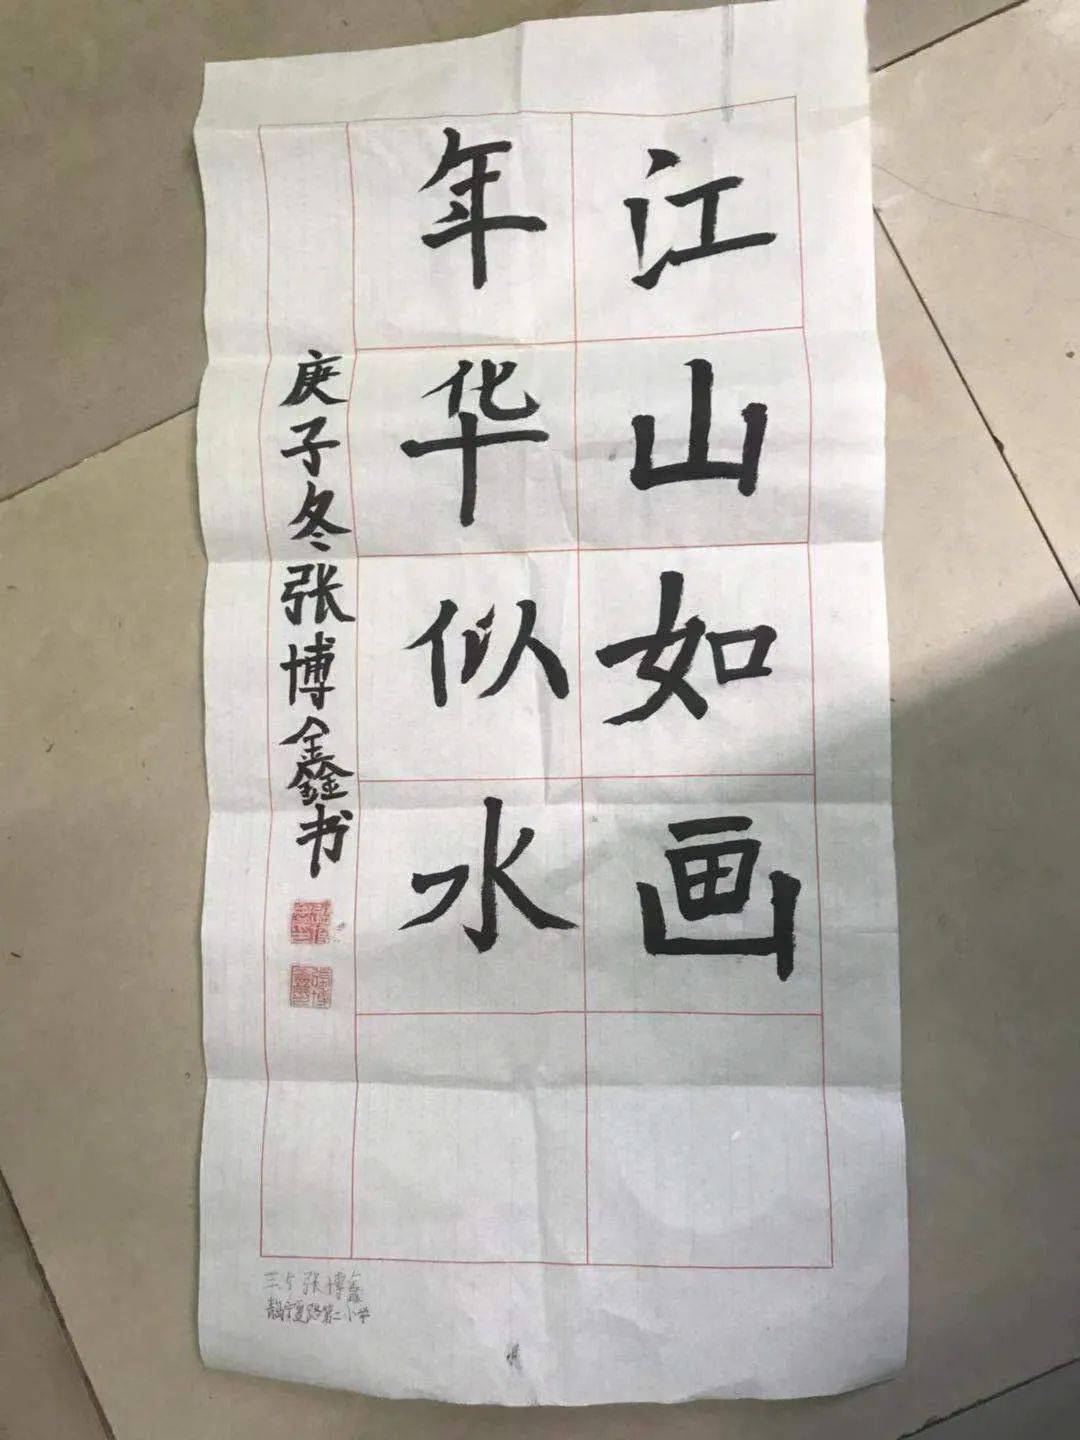 江山如画
年华似水
庚子冬张博鑫书
三5张博鑫
青岛宁夏路第二小学